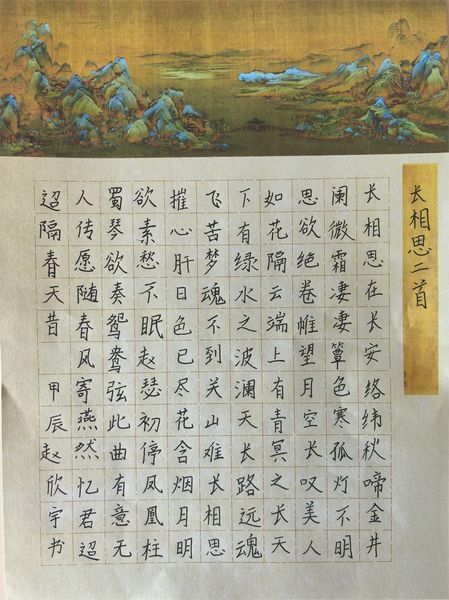 长相思二首
长相思在长安络纬秋啼金井
阑微霜凄凄簟色寒孤灯不明
思欲绝卷帷望月空长叹美人
如花隔云端上有青冥之长天
下有绿水之波澜天长路远魂
飞苦梦魂不到关山难长相思
摧心肝日色已尽花含烟月明
欲素愁不眠赵瑟初停凤凰柱
蜀琴欲奏鸳鸯弦此曲有意无
人传愿随春风寄燕然忆君迢
迢隔春天昔 甲辰赵欣宇书